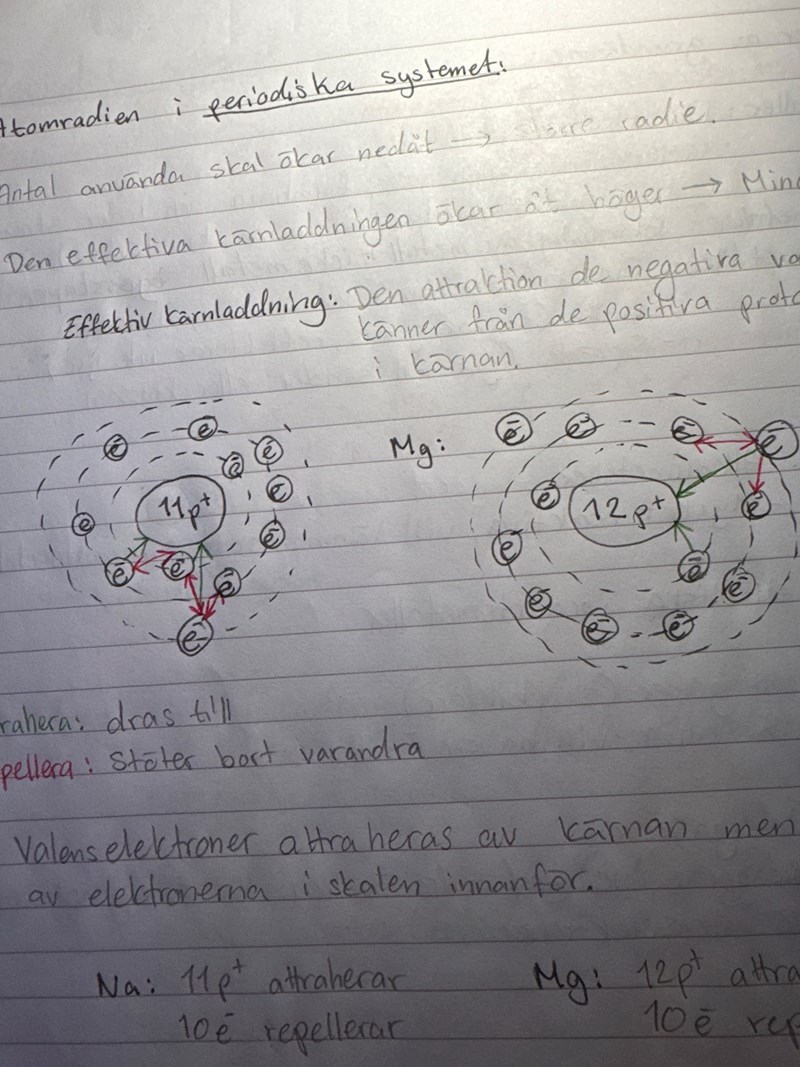 Atomradien i periodiska systemet:
Antal använda skal ökar nedåt → större radie.
Den effektiva kärnladdningen ökar åt höger → Mind
Effektiv kärnladdning: Den attraktion de negativa va
känner från de positiva proto
i kärnan.
Mg:
11p⁺
12p⁺
e⁻ e⁻ e⁻ e⁻ e⁻ e⁻ e⁻ e⁻ e⁻ e⁻ e⁻
e⁻ e⁻ e⁻ e⁻ e⁻ e⁻ e⁻ e⁻ e⁻ e⁻ e⁻ e⁻
rahera: dras till
pellera: Stöter bort varandra
Valenselektroner attraheras av kärnan men
av elektronerna i skalen innanför.
Na: 11p⁺ attraherar Mg: 12p⁺ attra
10e⁻ repellerar 10e⁻ rep